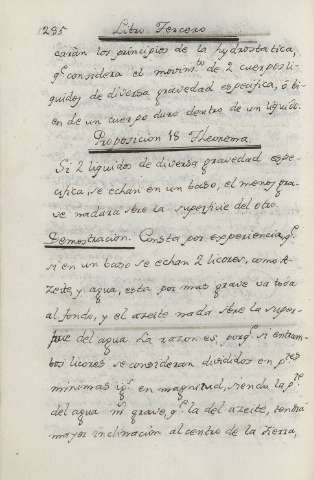 1295 Libro Tercero
carán los principios de la hydrostatica,
qe considera el movimto de 2 cuerpos li-
quidos de diversa gravedad especifica, ô bi-
en de un cuerpo duro dentro de un liquido.
Proposicion 18 Theorema
Si 2 liquidos de diversa gravedad espe-
cifica, se echan en un baso, el menos gra-
ve nadara sbre la superficie del otro.
Demostración. Consta por experiencia, qe
si en un baso se echan 2 licores, como A-
zeite, y agua, esta por mas grave va toda
al fondo, y el azeite nada sbre la super-
ficie del agua. La razon es, porqe si entram-
bos licores se consideran divididos en ptes
minimas igs en magnitud, siendo la pte
del agua ms grave, qe la del azeite, tendrá
mayor inclinación al centro de la tierra,